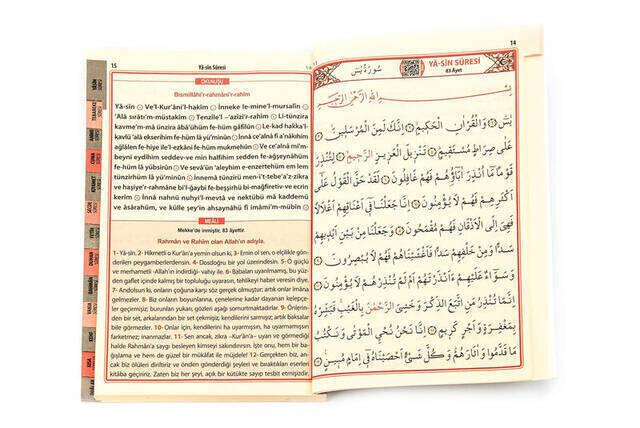 15
Yâ-sîn Sûresi
OKUNUŞU
Bismillâhi'r-rahmâni'r-rahîm
Yâ-sîn Ve'l-Kur'âni'l-hakîm İnneke le-mine'l-mursalîn
'Alâ sırâtı'm-müstakîm Tenzîle'l-'azîzi'r-rahîm Li-tünzira
kavme'm-mâ ünzira âbâühüm fe-hüm gâfilûn Le-kad hakka'l-
kavlü 'alâ ekserihim fe-hüm lâ yü'minûn İnnâ ce'alnâ fî a'nâkıhim
ağlâlen fe-hiye ile'l-ezkâni fe-hüm mukmehûn Ve ce'alnâ mi'm-
beyni eydîhim sedde'v-ve min halfihim sedden fe-ağşeynâhüm
fe-hüm lâ yübsirûn Ve sevâ'ün 'aleyhim e-enzertehüm em lem
tünzirhüm lâ yü'minûn İnnemâ tünziru men'i-t-tebe'a'z-zikra
ve haşiye'r-rahmâne bi'l-ğaybi fe-beşşirhü bi-mağfiretiv-ve ecrin
kerîm İnnâ nahnü nuhyi'l-mevtâ ve nektübü mâ kaddemû
ve âsârahüm, ve külle şey'in ahsaynâhü fî imâmi'm-mübîn
MEÂLİ
Mekke'de inmiştir, 83 âyettir.
Rahmân ve Rahîm olan Allah'ın adıyla.
1- Yâ-sîn. 2- Hikmetli o Kur'ân'a yemin olsun ki, 3- Emin ol sen, o elçilikle gönde-
rilen peygamberlerdensin. 4- Dosdoğru bir yol üzerindesin. 5- O güçlü
ve merhametli -Allah'ın indirdiği- vahiy ile. 6- Babaları uyarılmamış, bu yüz-
den gaflet içinde kalmış bir topluluğu uyarasın, tehlikeyi haber veresin diye.
7- Andolsun ki, onların çoğuna karşı söz gerçek olmuştur; artık onlar îmâna
gelmezler. 8- Biz onların boyunlarına, çenelerine kadar dayanan kelepçe-
ler geçirmişiz; burunları yukarı, gözleri aşağı somurtmaktadırlar. 9- Önlerin-
den bir set, arkalarından bir set çekmişiz, kendilerini sarmışız; artık baksalar
bile görmezler. 10- Onlar için, kendilerini ha uyarmışsın, ha uyarmamışsın
farketmez; inanmazlar. 11- Sen ancak, zikra -Kur'ân'a- uyan ve görmediği
halde Rahmân'a saygı besleyen kimseyi sakındırırsın. İşte onu, hem bir ba-
ğışlama ve hem de güzel bir mükâfat ile müjdele! 12- Gerçekten biz, an-
cak biz ölüleri diriltiriz ve önden gönderdikleri ve bıraktıkları eserleri
kitâba geçiririz. Zaten biz her şeyi, açık bir kütükte sayıp tesbit etmişizdir.
14
سُورَةُ يٰسٓ
YÂ-SÎN SÛRESİ
83 Âyet
بِسْمِ اللّٰهِ الرَّحْمٰنِ الرَّحِيمِ
يٰسٓ وَالْقُرْاٰنِ الْحَكِيمِ اِنَّكَ لَمِنَ الْمُرْسَلِينَ
عَلٰى صِرَاطٍ مُسْتَقِيمٍ تَنْزِيلَ الْعَزِيزِ الرَّحِيمِ لِتُنْذِرَ
قَوْمًا مَٓا اُنْذِرَ اٰبَٓاؤُهُمْ فَهُمْ غَافِلُونَ لَقَدْ حَقَّ الْقَوْلُ عَلٰٓى
اَكْثَرِهِمْ فَهُمْ لَا يُؤْمِنُونَ اِنَّا جَعَلْنَا فِٓي اَعْنَاقِهِمْ اَغْلَالًا
فَهِيَ اِلَى الْاَذْقَانِ فَهُمْ مُقْمَحُونَ وَجَعَلْنَا مِنْ بَيْنِ اَيْدِيهِمْ
سَدًّا وَمِنْ خَلْفِهِمْ سَدًّا فَاَغْشَيْنَاهُمْ فَهُمْ لَا يُبْصِرُونَ
وَسَوَٓاءٌ عَلَيْهِمْ ءَاَنْذَرْتَهُمْ اَمْ لَمْ تُنْذِرْهُمْ لَا يُؤْمِنُونَ
اِنَّمَا تُنْذِرُ مَنِ اتَّبَعَ الذِّكْرَ وَخَشِيَ الرَّحْمٰنَ بِالْغَيْبِ فَبَشِّرْهُ
بِمَغْفِرَةٍ وَاَجْرٍ كَرِيمٍ اِنَّا نَحْنُ نُحْيِ الْمَوْتٰى وَنَكْتُبُ
مَا قَدَّمُوا وَاٰثَارَهُمْ وَكُلَّ شَيْءٍ اَحْصَيْنَاهُ فِٓي اِمَامٍ مُبِينٍ